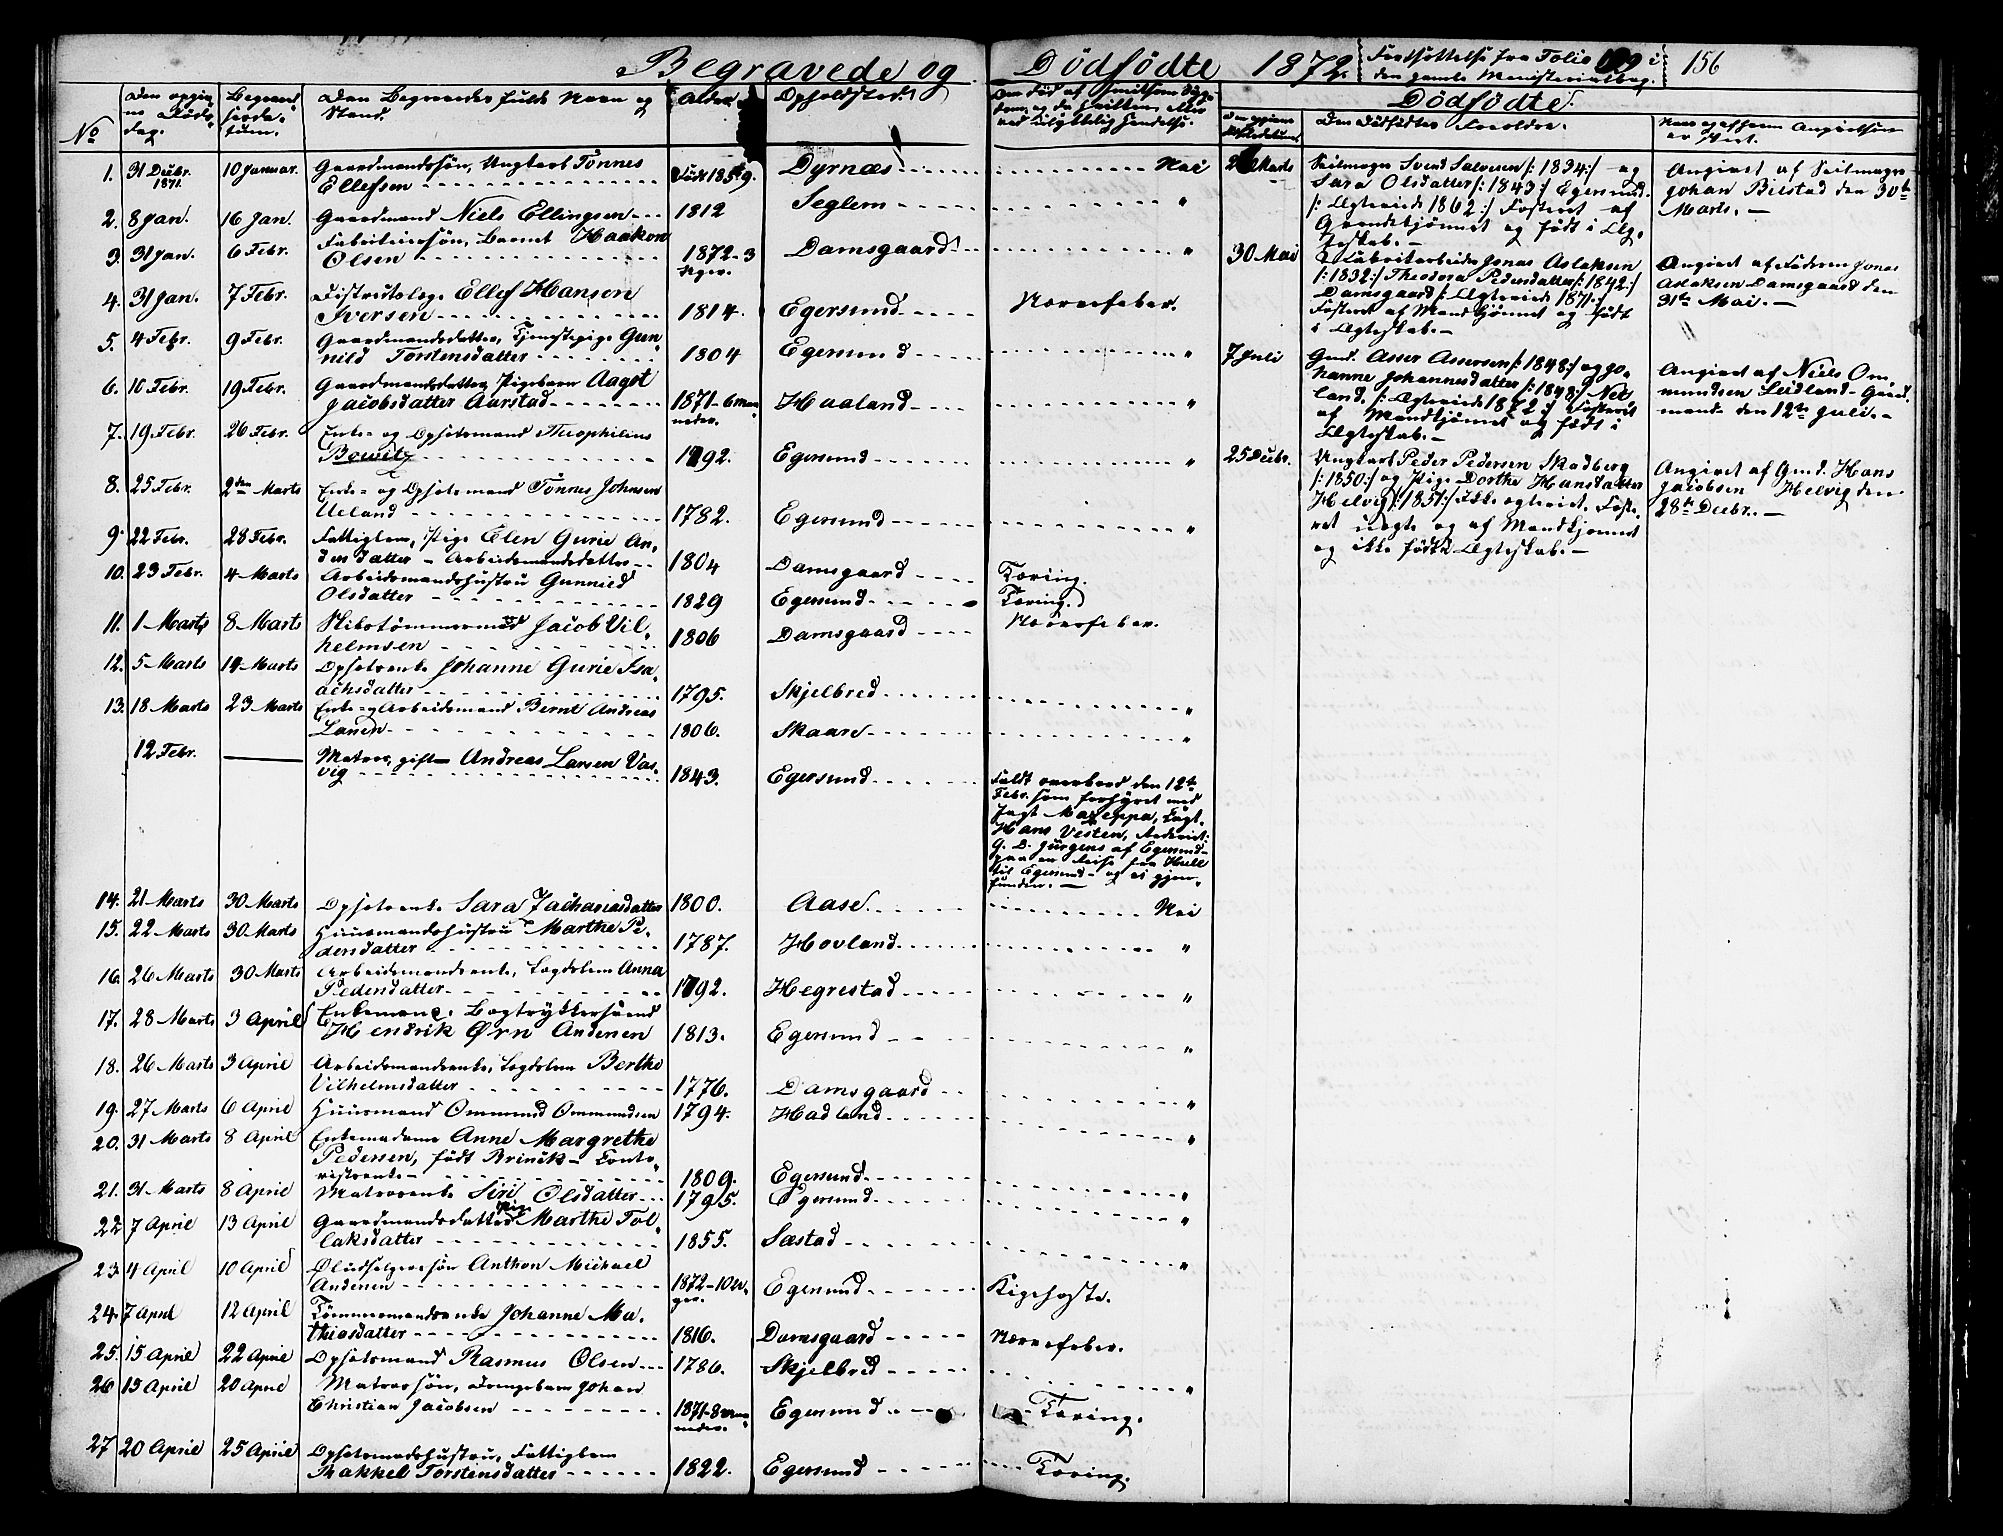 Begravede og Dödfödte 1872. Fortsættelse fra Folio i
den gamle Ministerialbog. 156
Den opgiv-
ne Döds-
dag.
Begravel-
sesda-
tum.
Den Begravedes fulde Navn og
Stand.
Alder
Opholdssted.
Om död af smitsom Syg-
dom, og da hvilken, eller
ved ulykkelig Hændelse.
Dödfödte.
Den Dödfödtes Forældre.
No
1. 31 Decbr. 1871. 10 Januar. Gaardmandssön, Ungkarl Tönnes
Ellefsen Födt 1859. Dyrnæs Nei
2. 8 Jan. 16 Jan. Gaardmand Niels Ellingsen 1812 Seglem "
3. 31 Jan. 6 Febr. Fabrikeiersön, Barnet Haakon
Olsen 1872 - 3 Uger. Damsgaard "
4. 31 Jan. 7 Febr. Districtslæge Ellef Hanson
Iversen 1814. Egersund Nervefeber.
5. 4 Febr. 9 Febr. Gaardmandsdatter, Tjenestepige Gun-
nild Torstensdatter 1804 Egersund "
6. 10 Febr. 19 Febr. Gaardmandsdatter, Pigebarn Aagot
Jacobsdatter Aarstad 1871 - 6 Maa-
neder. Haaland "
7. 19 Febr. 26 Febr. Enke- og Opsidmand Theophilius
Bowitz 1792. Egersund "
8. 25 Febr. 2den Marts Enke- og Opsidmand Tönnes Johnsen
Ueland 1782. Egersund "
9. 22 Febr. 28 Febr. Fattiglem, Pige Elen Gurie An-
dersdatter - Arbeidsmandsdatter 1804 Damsgaard Tæring.
10. 23 Febr. 4 Marts Arbeidsmandshustru Gunnild
Olsdatter 1829 Egersund Tæring.
11. 1 Marts 8 Marts Skibstömmermand Jacob Vil-
helmsen 1806 Damsgaard Nervefeber.
12. 5 Marts 14 Marts Johanne Gurie Isa-
achsdatter 1795. Skjelbred "
13. 18 Marts 23 Marts Enke- og Arbeidsmand Bernt Andreas
Lanen 1806. Skaare "
12 Febr. — Matros, gift Andreas Larsen Vas-
vig 1843. Egersund Faldt overbord den 12te
Febr. som forhyret med
Jagt Mazeppa, Capt.
Hans Vesten, Rederiet:
G. D. Jürgens af Egersund
paa en Reise fra Hull
til Egersund - og ei gjen-
funden. —
14. 21 Marts 30 Marts Sara Zachariasdatter 1800. Aase Nei
15. 22 Marts 30 Marts Huusmandshustru Marthe Pe-
dersdatter 1787. Hovland "
16. 26 Marts 30 Marts Arbeidsmandsenke, Lægdslem Anna
Pedersdatter 1792. Hegrestad "
17. 28 Marts 3 April Enkemand, Bogtrykkersvend
Hendrik Ørn Andersen 1813. Egersund "
18. 26 Marts 3 April Arbeidsmandsenke, Lægdslem Berthe
Vilhelmsdatter 1776. Damsgaard "
19. 27 Marts 6 April Huusmand Ommund Ommundsen 1794. Hadland "
20. 31 Marts 8 April Enkemadame Anne Margrethe
Pedersen, födt Brinck - Conto-
ristenke 1809. Egersund "
21. 31 Marts 8 April Matrosenke Siri Olsdatter 1795. Egersund "
22. 7 April 13 April Gaardmandsdatter Pige Marthe Tol-
laksdatter 1855. Sæstad "
23. 4 April 10 April Anthon Michael
Andersen 1872 - 10 U-
ger. Egersund Kighoste.
24. 7 April 12 April Tömmermandsenke Johanne Ma-
thiasdatter 1816. Damsgaard Nervefeber.
25. 15 April 22 April Rasmus Olsen 1786. Skjelbred "
26. 15 April 20 April Matrossön, Drengebarn Johan
Christian Jacobsen 1871 - 8 Maa-
neder. Egersund Tæring.
27. 20 April 25 April Fattiglem
Rakkel Torstensdatter 1822. Egersund Tæring.
Marts Seilmager Svend Salvesen /: 1834 :/ og
Sara Olsdatter /: 1843 :/ Egersund.
/: Ægteviede 1862 :/ Fosteret af
Qvindekjønnet og født i Æg-
teskab. —
Angivet af Seilmager
Johan Bilstad den 30te
Marts. —
30 Mai Fabrikarbeider Jonas Aslaksen
/: 1832 :/ Theodora Pedersdatter /: 1842 :/
Damsgaard /: Ægteviede 1871 :/
Fosteret af Mandkjønnet og født
i Ægteskab. —
Angivet af Faderen Jonas
Aslaksen Damsgaard den
31te Mai. —
7 Juli Gmd. Asser Assersen /: 1848 :/ og Jo-
hanne Johannesdatter /: 1848 :/ Net-
land, /: Ægteviede 1872 :/ Fosteret
af Mandkjønnet og født i
Ægteskab. —
Angivet af Niels Om-
mundsen Leidland - Gaard-
mand - den 12te Juli. —
25 Decbr. Ungkarl Peder Pedersen Skadberg
/: 1850 :/ og Pige Dorthe Hansdatter
Helvig /: 1851 :/ Ikke ægteviet. Foste-
ret uægte og af Mandkjønnet
og ikke født i Ægteskab. —
Angivet af Gmd. Hans
Jacobsen Helvig den
28de Decbr. —